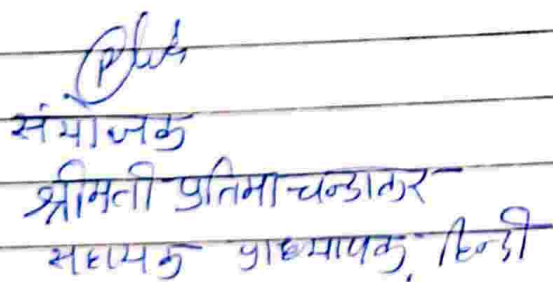 संयोजक
श्रीमती प्रतिमा चन्द्राकर
सहायक प्राध्यापक, हिन्दी